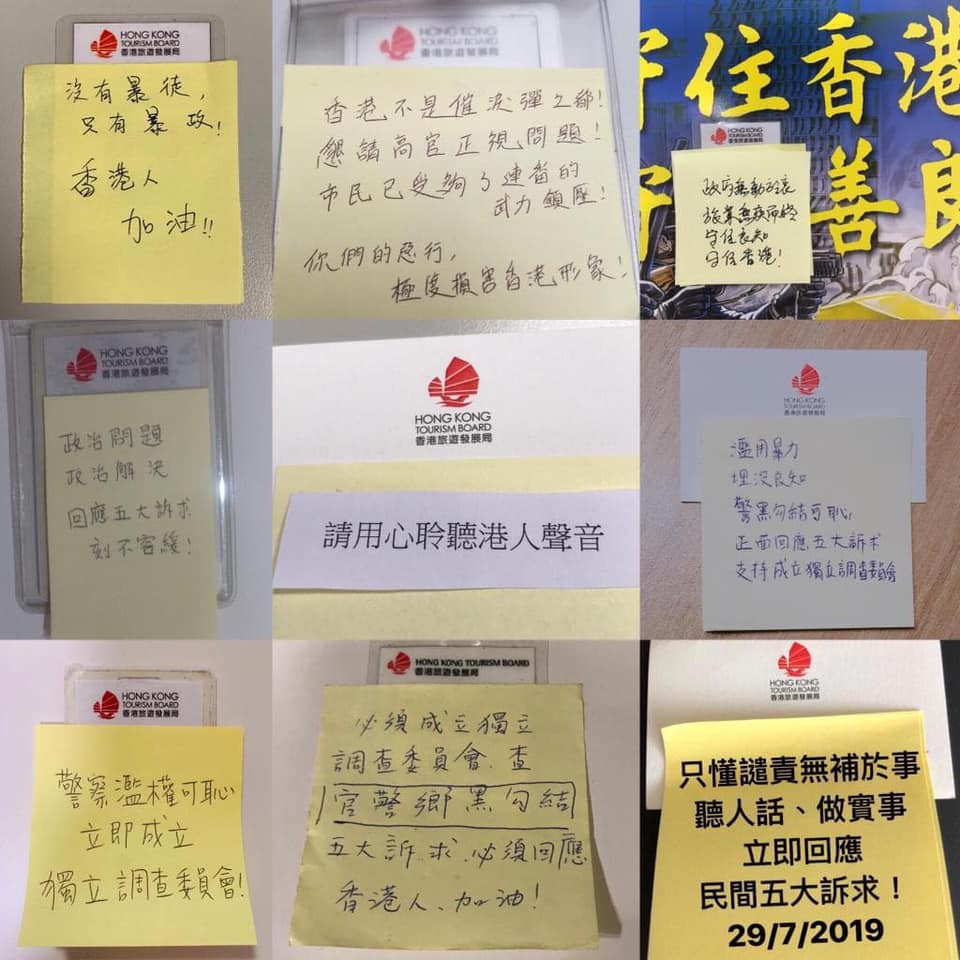 HONG KONG
TOURISM BOARD
香港旅遊發展局
沒有暴徒，
只有暴政！
香港人
加油!!
HONG KONG
TOURISM BOARD
香港旅遊發展局
香港不是催淚彈之都！
懇請高官正視問題！
市民已受夠了連番的
武力鎮壓！
你們的惡行，
極度損害香港形象！
守住香港
善良
HONG KONG
TOURISM BOARD
香港旅遊發展局
政府無動於衷
旅業無疾而終
守住良知
守住香港！
HONG KONG
TOURISM BOARD
香港旅遊發展局
政治問題
政治解決
回應五大訴求
刻不容緩！
HONG KONG
TOURISM BOARD
香港旅遊發展局
請用心聆聽港人聲音
HONG KONG
TOURISM BOARD
香港旅遊發展局
濫用暴力
埋沒良知
警黑勾結可恥
正面回應五大訴求
支持成立獨立調查委員會
HONG KONG
TOURISM BOARD
香港旅遊發展局
警察濫權可恥
立即成立
獨立調查委員會！
HONG KONG TOURISM BOARD
香港旅遊發展局
必須成立獨立
調查委員會，查
官警鄉黑勾結
五大訴求，必須回應
香港人、加油！
HONG KONG
TOURISM BOARD
香港旅遊發展局
只懂譴責無補於事
聽人話、做實事
立即回應
民間五大訴求！
29/7/2019